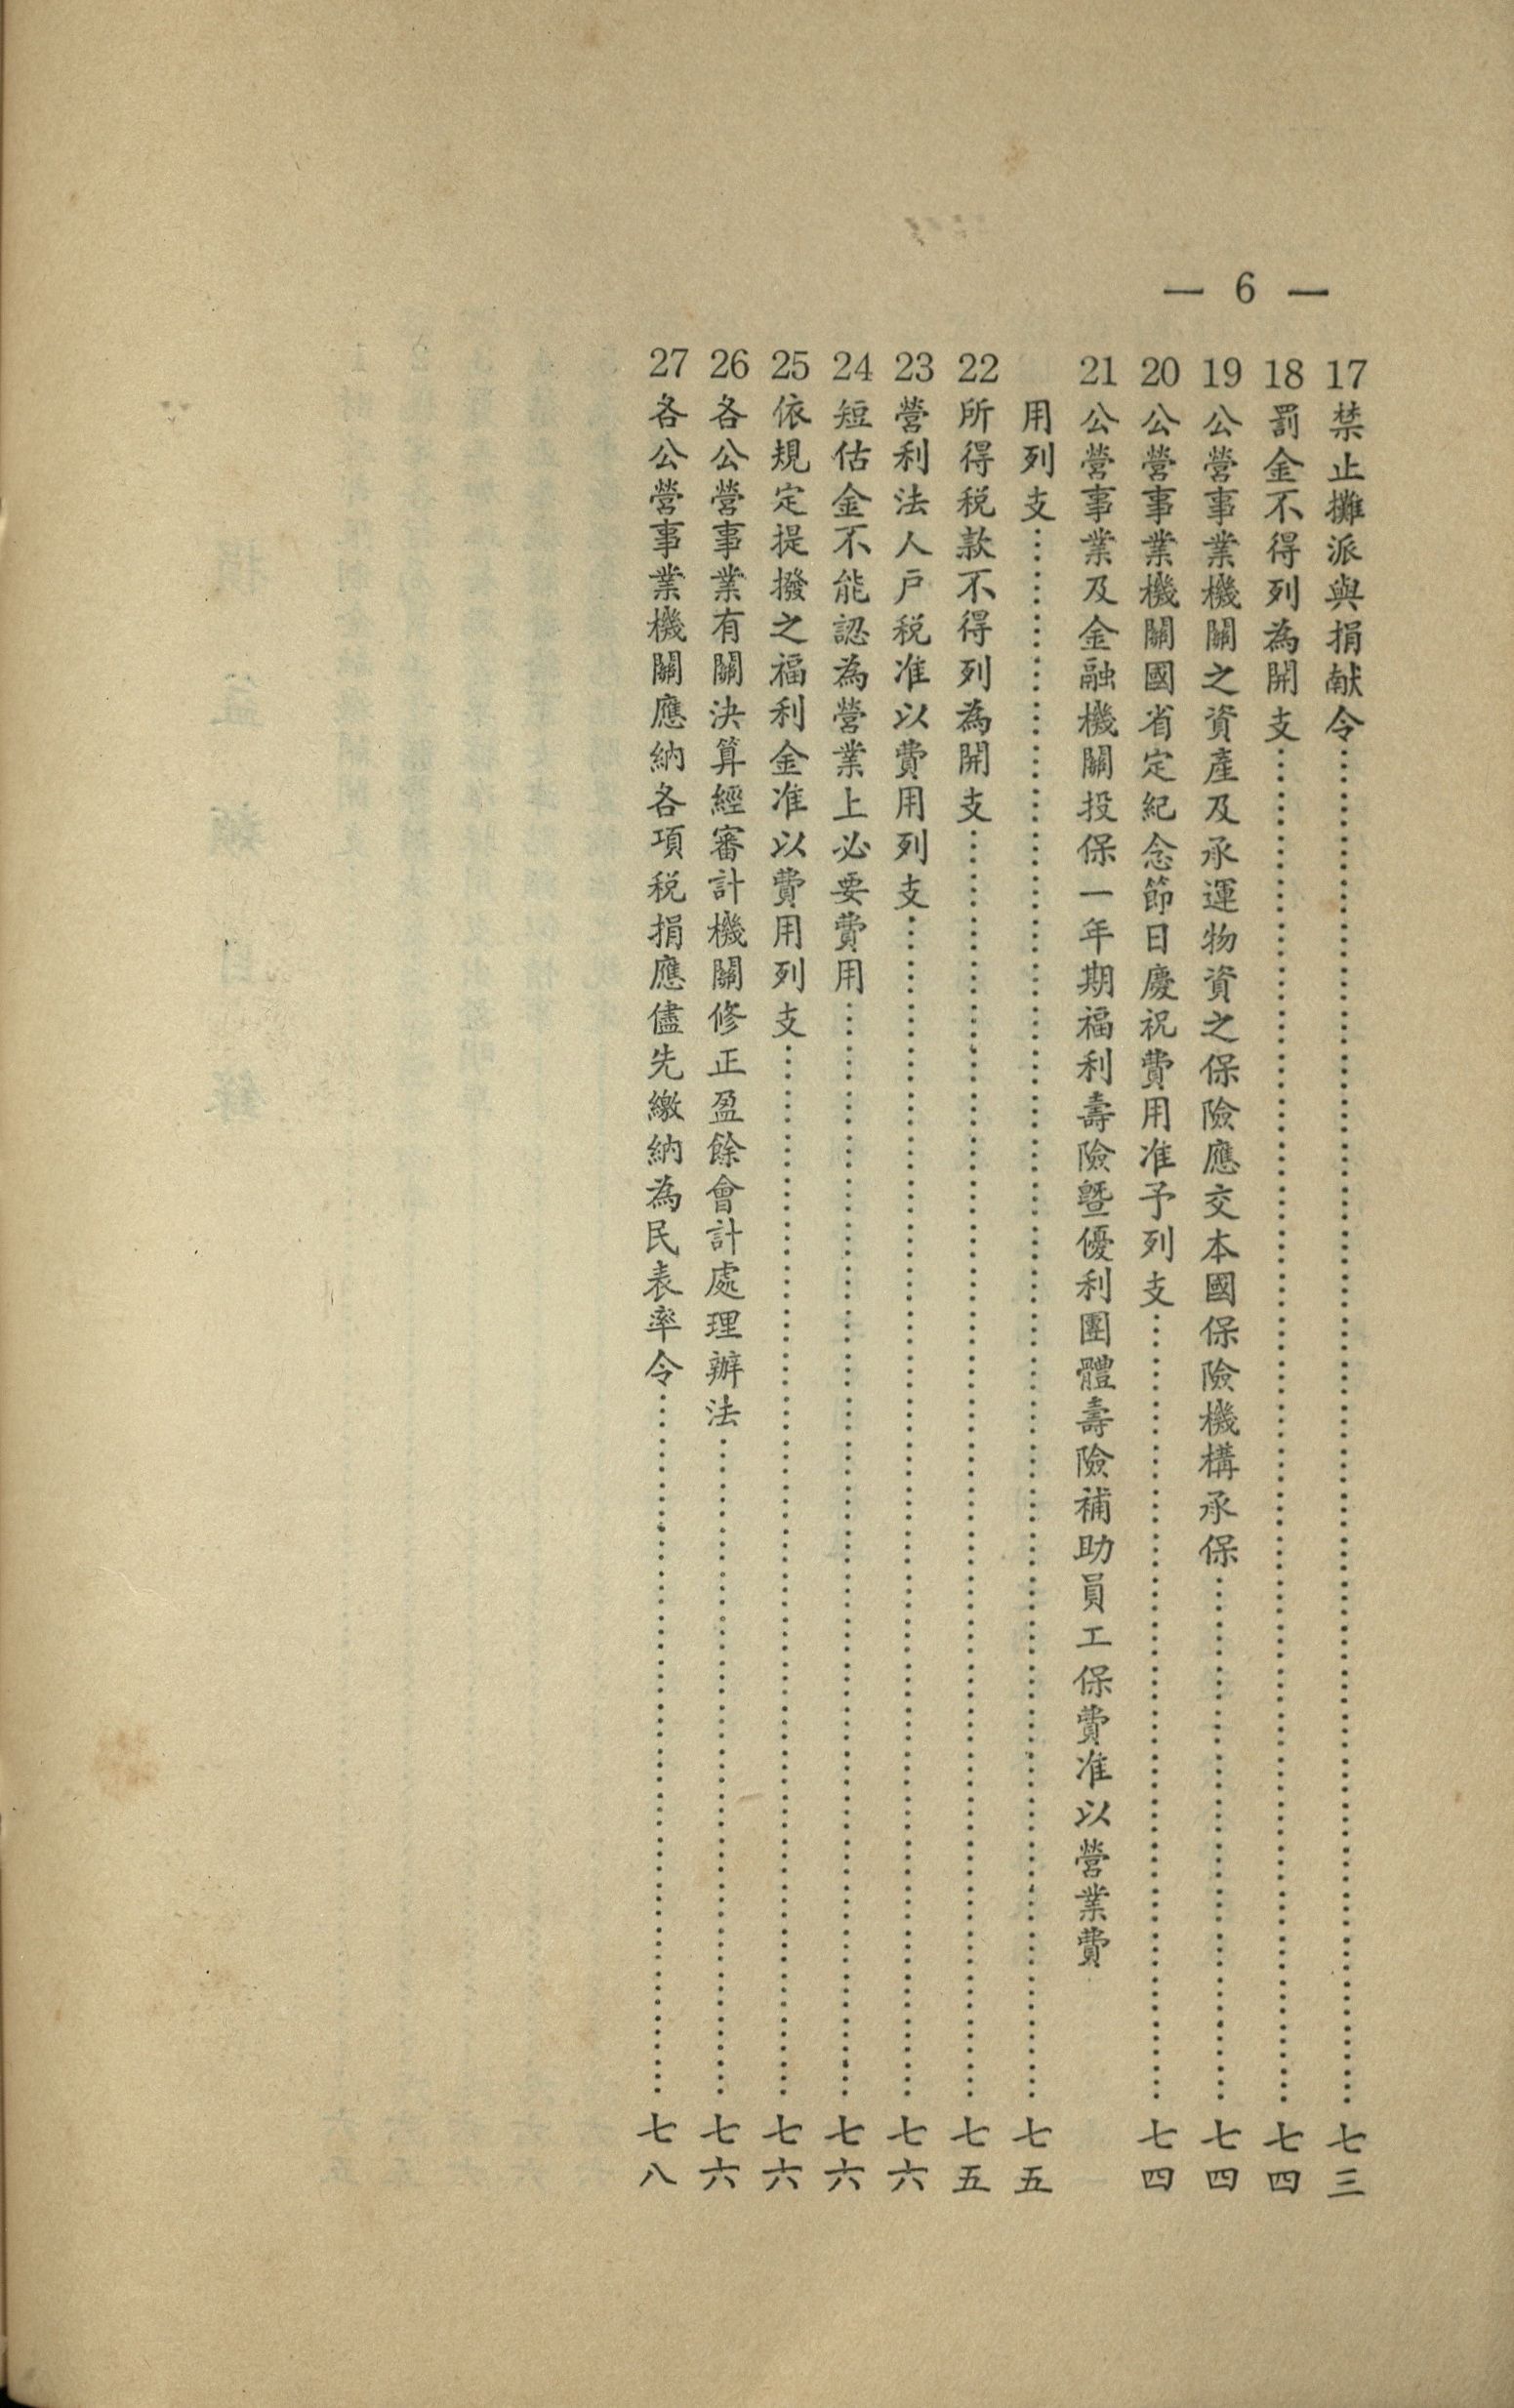 — 6 —
17禁止攤派與捐献令……七三
18罰金不得列為開支……七四
19公營事業機關之資產及承運物資之保險應交本國保險機構承保……七四
20公營事業機關國省定紀念節日慶祝費用准予列支……七四
21公營事業及金融機關投保一年期福利壽險暨優利團體壽險補助員工保費准以營業費
用列支……七五
22所得税款不得列為開支……七五
23營利法人戶税准以費用列支……七六
24短估金不能認為營業上必要費用……七六
25依規定提撥之福利金准以費用列支……七六
26各公營事業有關決算經審計機關修正盈餘會計處理辦法……七六
27各公營事業機關應納各項税捐應儘先繳納為民表率令……七八